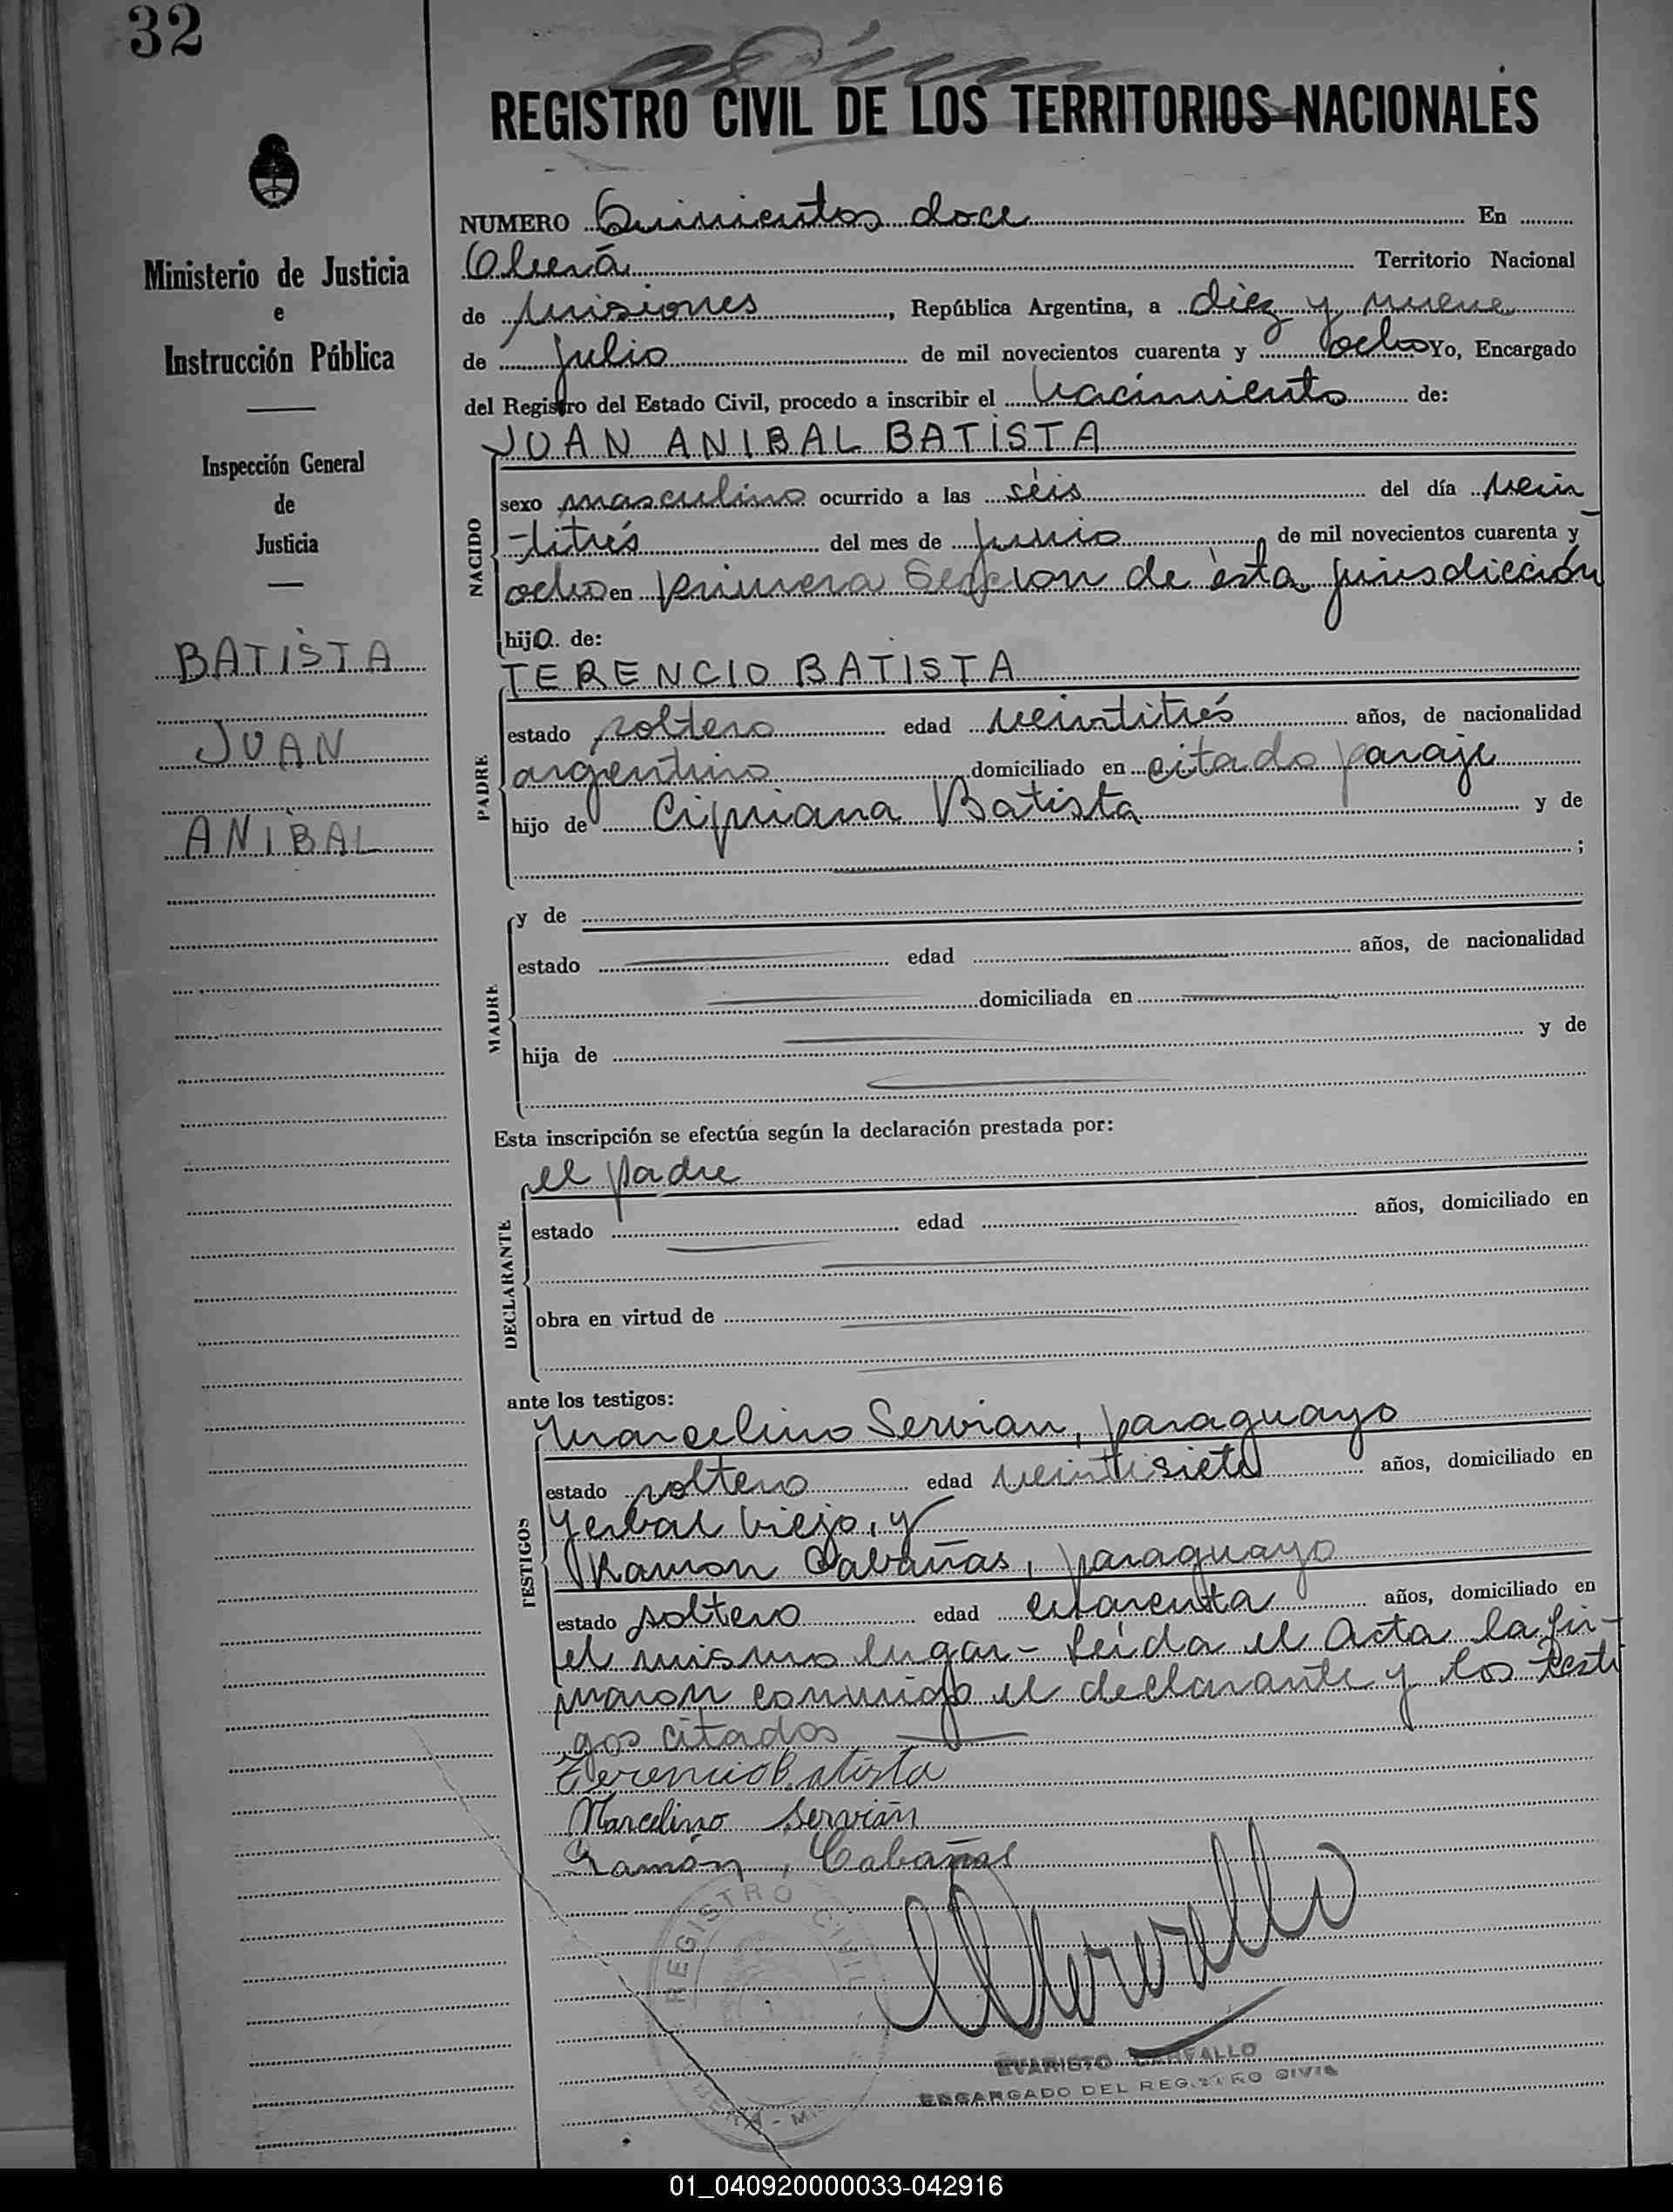 32
REGISTRO CIVIL DE LOS TERRITORIOS NACIONALES
Ministerio de Justicia
e
Instrucción Pública
Inspección General
de
Justicia
BATISTA
JUAN
ANIBAL
NUMERO Quinientos doce En
Oberá Territorio Nacional
de Misiones, República Argentina, a diez y nueve
de julio de mil novecientos cuarenta y ocho Yo, Encargado
del Registro del Estado Civil, procedo a inscribir el nacimiento de:
JUAN ANIBAL BATISTA
NACIDO
sexo masculino ocurrido a las séis del día vein
-titrés del mes de junio, de mil novecientos cuarenta y
ocho en primera Sección de ésta jurisdicción
hijo de:
TERENCIO BATISTA
PADRE
estado soltero edad veintitrés años, de nacionalidad
argentino domiciliado en citado paraje
hijo de Cipriana Batista y de
;
MADRE
y de
estado edad años, de nacionalidad
domiciliada en
hija de y de
Esta inscripción se efectúa según la declaración prestada por:
el padre
DECLARANTE
estado edad años, domiciliado en
obra en virtud de
ante los testigos:
TESTIGOS
Marcelino Servian, paraguayo
estado soltero edad veintisiete años, domiciliado en
Yerbal Viejo, y
Ramon Cabañas, paraguayo
estado soltero edad cuarenta años, domiciliado en
el mismo lugar- Leída el Acta la fir-
maron conmigo el declarante y los testi
gos citados
Terencio Batista
Marcelino Servián
Ramón, Cabañas
REGISTRO CIVIL
EVARISTO CARVALLO
ENCARGADO DEL REGISTRO CIVIL
01_040920000033-042916